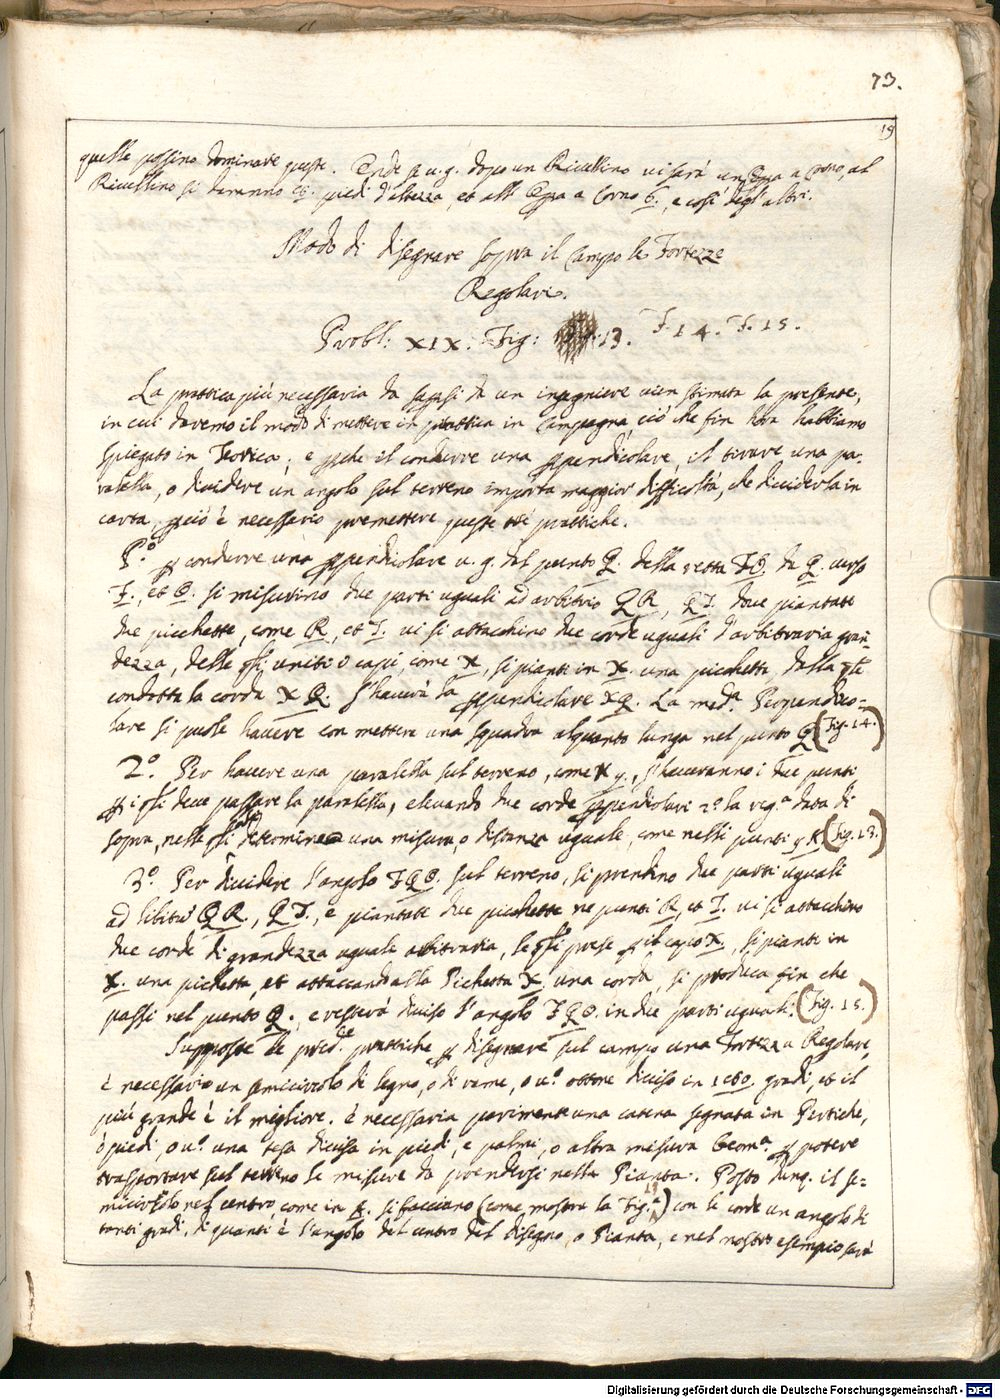 73.
19
quelle possino dominare queste. Onde se u.g. dopo un Rivellino vi sarà un'Opra a Corno, al
Rivellino si daranno piedi d'altezza, et all'Opra a Corno 6., e così degl'altri.
Modo di disegnare sopra il Campo le Fortezze
Regolari.
Probl: XIX. Fig: 13. F. 14. F. 15.
La prattica più necessaria da sapersi da un ingegniere vien stimata la presente,
in cui daremo il modo di mettere in prattica in Campagna, ciò che fin hora habbiamo
spiegato in Teorica; e perche il condurre una perpendicolare, il tirare una pa-
ralella, o dividere un angolo sul terreno importa maggior difficoltà, che dividerla in
carta, perciò è necessario premettere queste trè prattiche.
P.º per condurre una perpendicolare u.g. dal punto Q. della retta FO. da Q. verso
F., et O. si misurino due parti uguali ad arbitrio QR, QI. dove piantate
due picchette, come R., et I. vi si attacchino due corde uguali d'arbitraria gran-
dezza, delle quali uniti i capi, come X, si pianti in X. una picchetta, dalla quale
condotta la corda XQ. s'haverà la perpendicolare XQ. La med.ª Perpendico-
lare si puole havere con mettere una squadra alquanto lunga nel punto Q (Fig. 14.)
2.º Per havere una paralella sul terreno, come X y., s'haveranno i due punti
per i quali deve passare la paralella, elevando due corde perpendicolari 2.º la reg.ª data di
sopra, nelle quali si determina una misura, o distanza uguale, come nelli punti y X (Fig. 13.)
3.º Per dividere l'angolo FQO. sul terreno, si prendino due parti uguali
ad libitu' QR., QI., e piantate due picchette ne punti R, et I. vi si attacchino
due corde di grandezza uguale arbitraria, le quali prese per il capo X., si pianti in
X. una pichetta, et attaccand'alla Pichetta X una corda, si produca fin che
passi nel punto Q., e resterà diviso l'angolo FQO. in due parti uguali. (Fig. 15.)
Supposte le pred.te prattiche per disegnare sul campo una Fortezza Regolare,
è necessario un semicircolo di legno, o di rame, o u.º ottone diviso in 180. gradi, et il
più grande è il migliore. è necessaria parimente una catena segnata in Pertiche,
ò piedi, o u.º una tesa divisa in piedi, e palmi, o altra misura Geom.ª per potere
trasportare sul terreno le misure da prendersi nella Pianta. Posto dunq. il se-
micircolo nel centro, come in si facciano (come mostra la Fig.ª) con le corde un angolo di
tanti gradi, di quanti è l'angolo del centro del disegno, o Pianta, e nel nostro esempio sarà
Digitalisierung gefördert durch die Deutsche Forschungsgemeinschaft - DFG